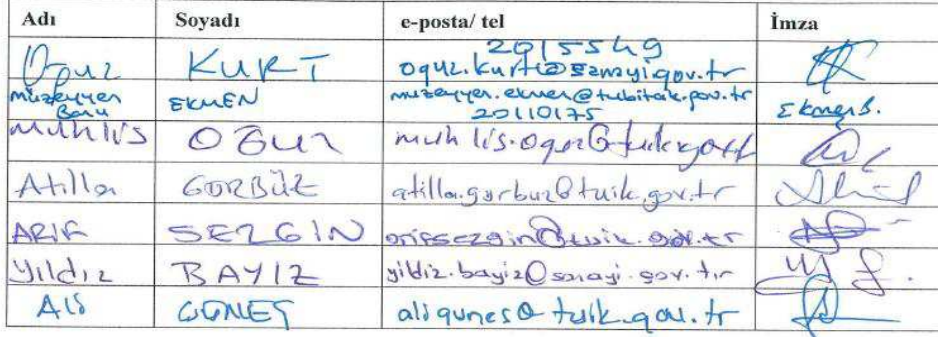 Adı Soyadı e-posta/ tel İmza
2015549
Oğuz KURT oguz.kurt@sanayi.gov.tr
müzeyyen EKMEN muzeyyen.ekmen@tubitak.gov.tr
Banu 20110175
Muhlis OĞUZ muhlis.oguz@tuik.gov.tr
Atilla GÖRBÜZ atilla.gorbuz@tuik.gov.tr
ARIF SEZGIN arifsezgin@tuik.gov.tr
Yıldız BAYIZ yildiz.bayiz@sanayi.gov.tr
Ali GÜNEŞ aligunes@tuik.gov.tr